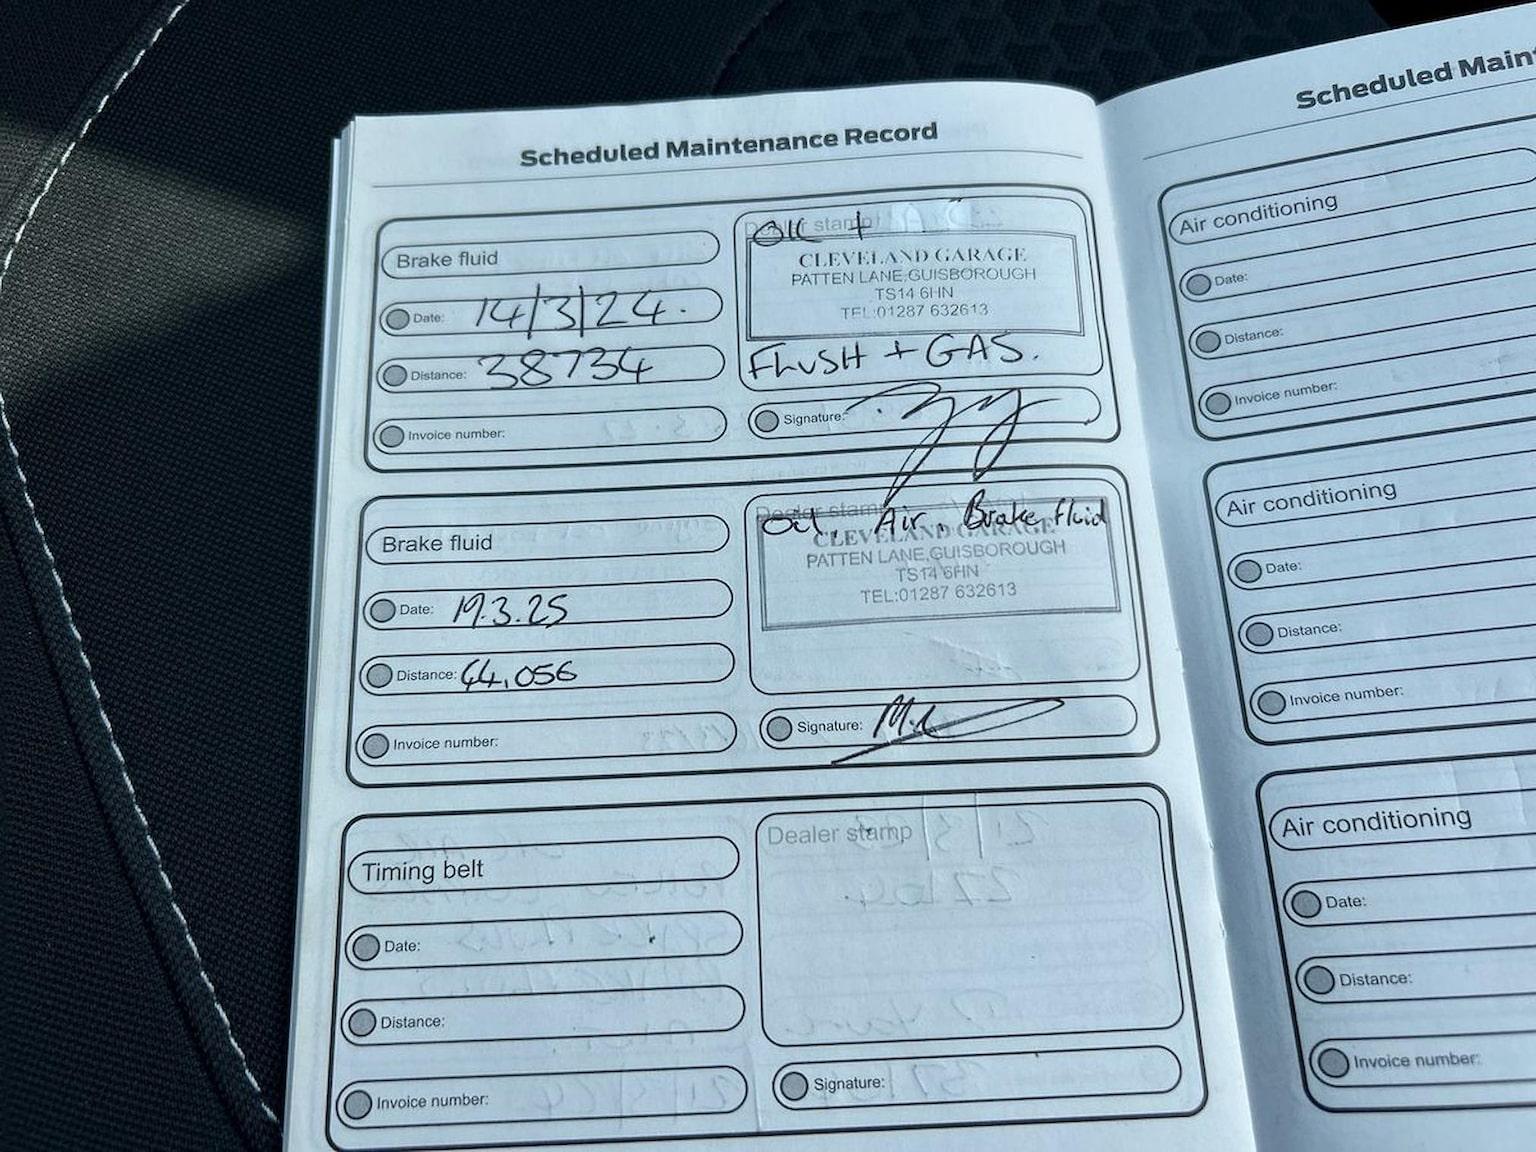 Scheduled Maintenance Record
Brake fluid
Date: 14/3/24.
Distance: 38734
Invoice number:
Dealer stamp
OIL +
CLEVELAND GARAGE
PATTEN LANE,GUISBOROUGH
TS14 6HN
TEL:01287 632613
FLUSH + GAS.
Signature:
Brake fluid
Date: 19.3.25
Distance: 44,056
Invoice number:
Dealer stamp
Oil, Air, Brake fluid
CLEVELAND GARAGE
PATTEN LANE,GUISBOROUGH
TS14 6HN
TEL:01287 632613
Signature:
Timing belt
Date:
Distance:
Invoice number:
Dealer stamp
Signature:
Scheduled
Air conditioning
Date:
Distance:
Invoice number:
Air conditioning
Date:
Distance:
Invoice number:
Air conditioning
Date:
Distance:
Invoice number: